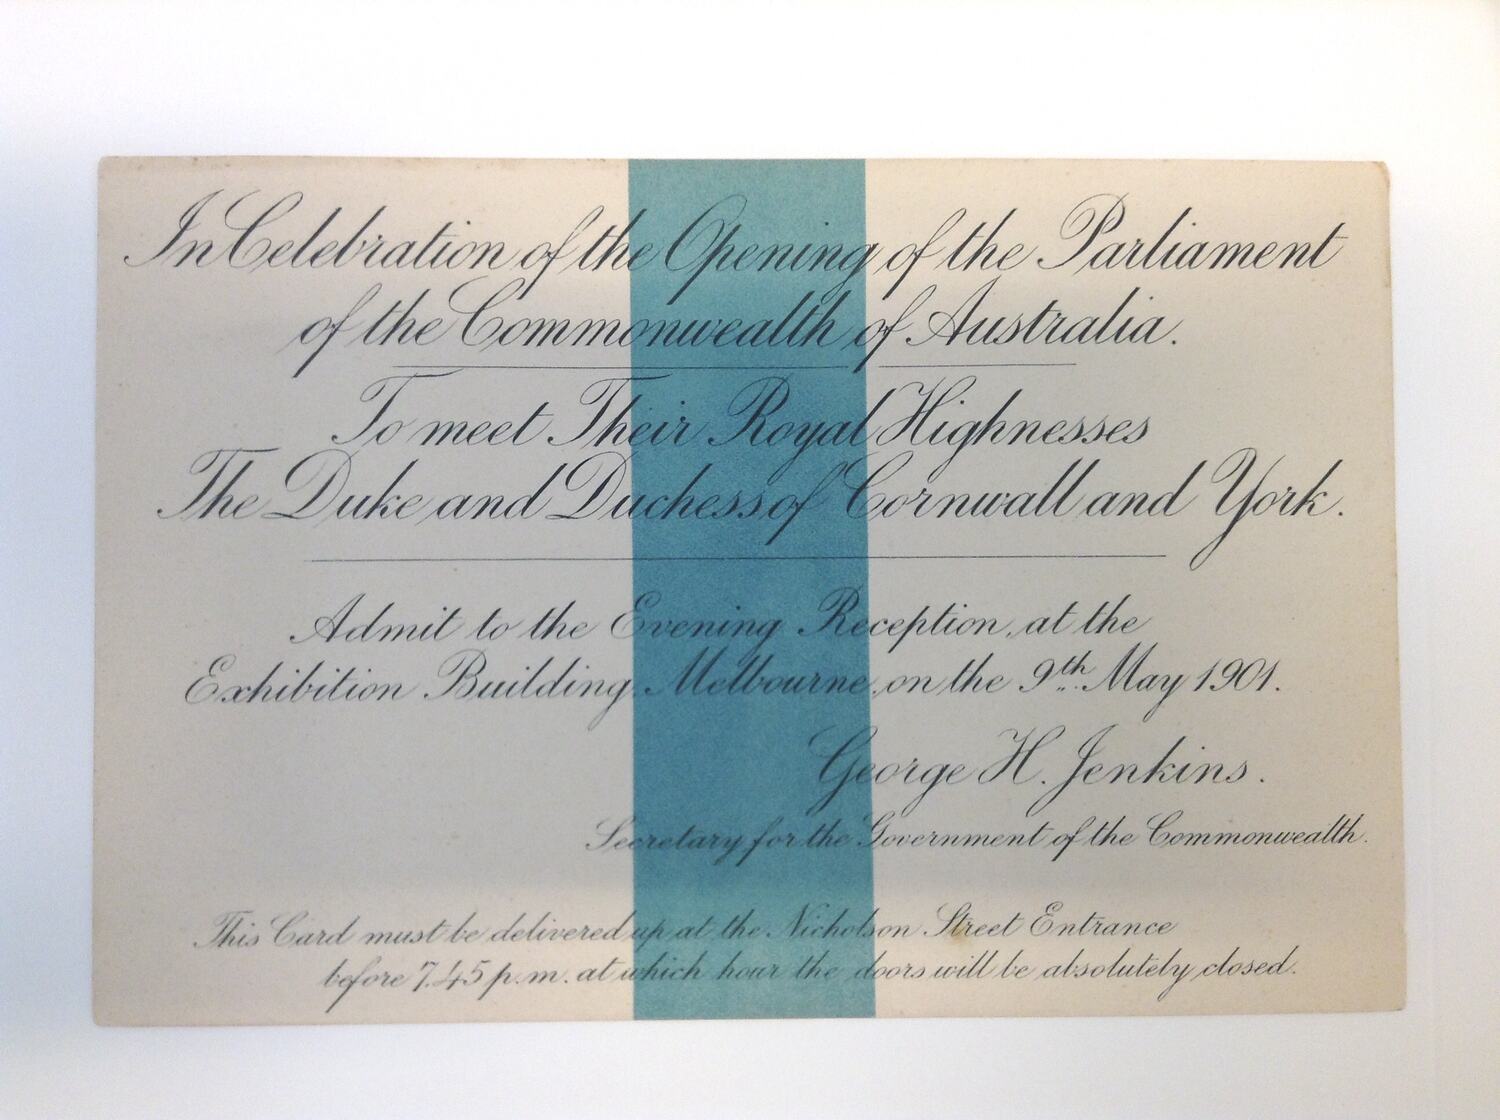 In Celebration of the Opening of the Parliament
of the Commonwealth of Australia.
To meet Their Royal Highnesses
The Duke and Duchess of Cornwall and York.
Admit to the Evening Reception, at the
Exhibition Building, Melbourne, on the 9th May 1901.
George H. Jenkins.
Secretary for the Government of the Commonwealth.
This Card must be delivered up at the Nicholson Street Entrance
before 7.45 p.m. at which hour the doors will be absolutely closed.